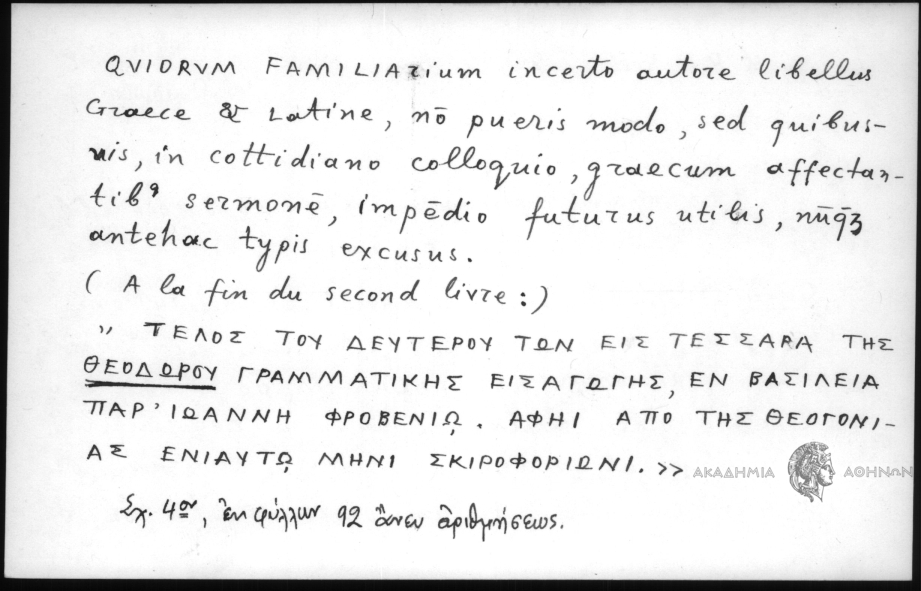 QVIORVM FAMILIArium incerto autore libellus
Graece & Latine, nō pueris modo, sed quibus-
vis, in cottidiano colloquio, graecum affectan-
tibꝰ sermonē, impēdio futurus utilis, nūq̄ꝫ
antehac typis excusus.
( A la fin du second livre : )
" ΤΕΛΟΣ ΤΟΥ ΔΕΥΤΕΡΟΥ ΤΩΝ ΕΙΣ ΤΕΣΣΑΡΑ ΤΗΣ
ΘΕΟΔΩΡΟΥ ΓΡΑΜΜΑΤΙΚΗΣ ΕΙΣΑΓΩΓΗΣ, ΕΝ ΒΑΣΙΛΕΙΑ
ΠΑΡ' ΙΩΑΝΝΗ ΦΡΟΒΕΝΙῼ. ΑΦΗΙ ΑΠΟ ΤΗΣ ΘΕΟΓΟΝΙ-
ΑΣ ΕΝΙΑΥΤῼ ΜΗΝΙ ΣΚΙΡΟΦΟΡΙΩΝΙ. >>
ΑΚΑΔΗΜΙΑ ΑΘΗΝΩΝ
Σχ. 4ον, ἐκ φύλλων 92 ἄνευ ἀριθμήσεως.